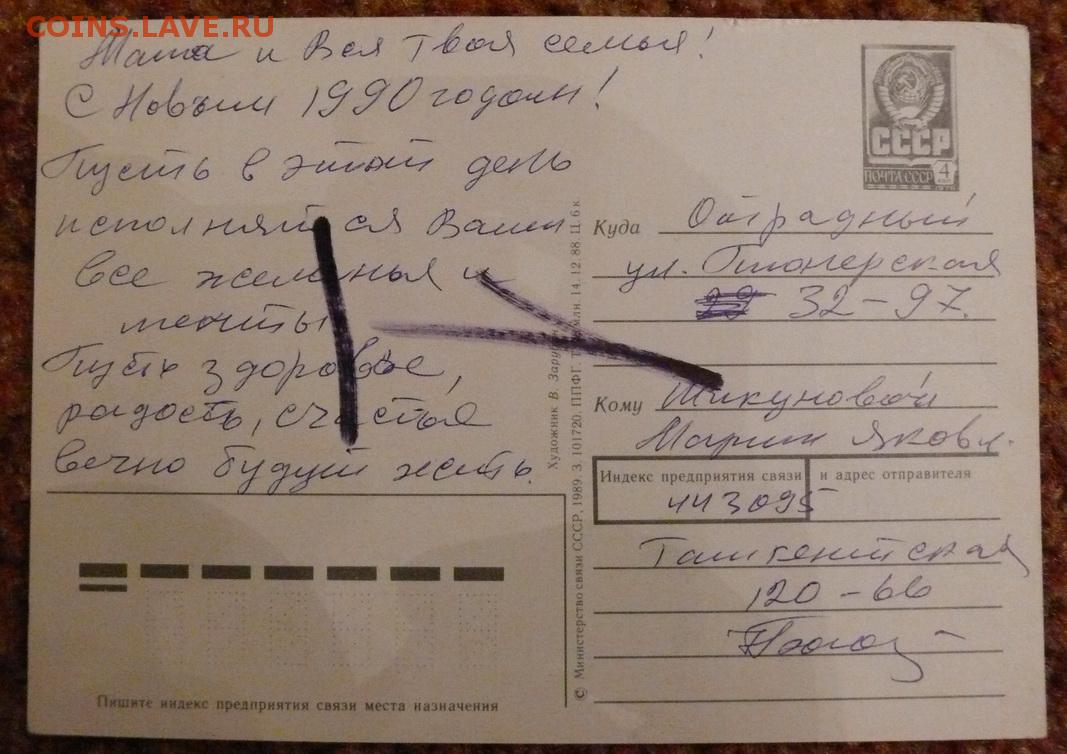 COINS.LAVE.RU
Маша и Вся Твоя семья!
С Новым 1990 годом!
Пусть в этот день
исполнятся Ваши
все желанья и
мечты
Пусть здоровье,
радость, счастье
вечно будут жить.
СССР
ПОЧТА СССР 4
Куда Отрадный
ул. Пионерская
32-97.
Кому Тикуновой
Марии Яковл.
Индекс предприятия связи и адрес отправителя
443095
Ташкентская
120-66
© Министерство связи СССР, 1989. З. 101720. ППФГ. млн. 14.12.88. Ц. 6 к.
Художник В.
Пишите индекс предприятия связи места назначения